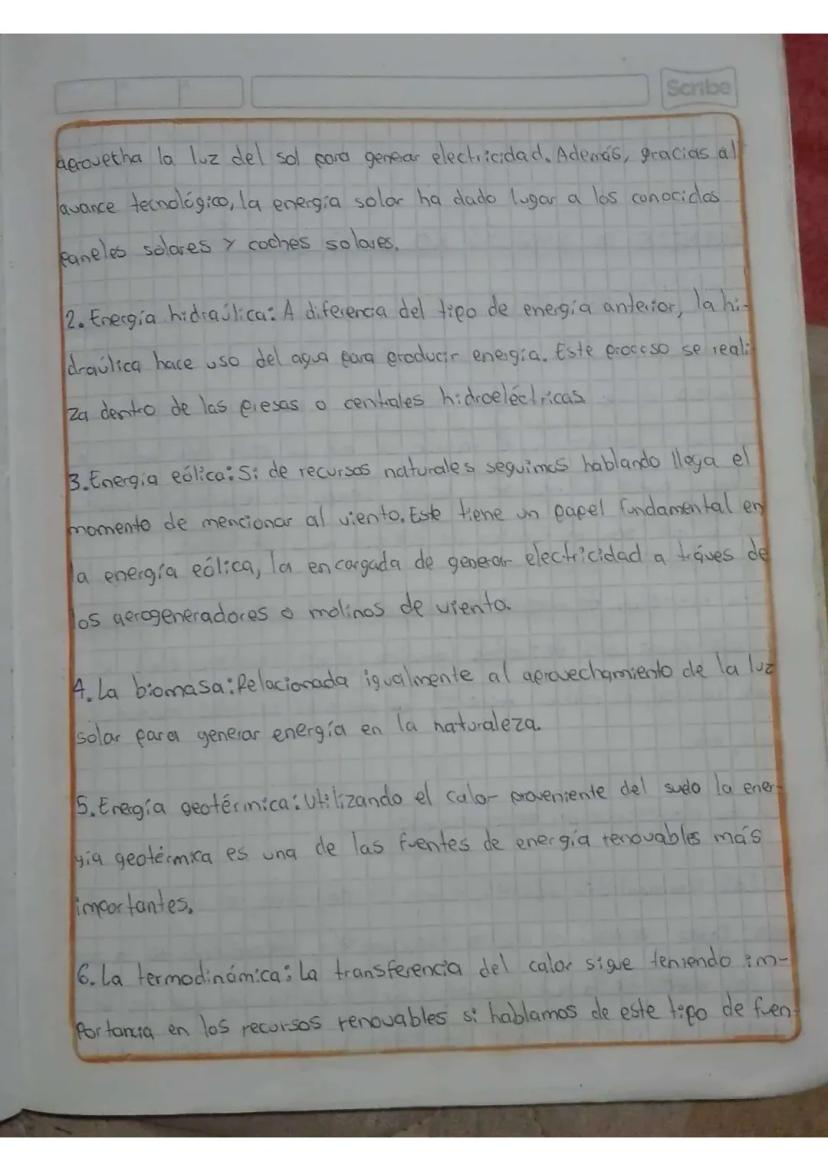 Scribe
aprovetha la luz del sol para generar electricidad. Además, gracias al
avance tecnológico, la energía solar ha dado lugar a los conocidos
Paneles solares y coches solares.
2. Energía hidraúlica: A diferencia del tipo de energía anterior, la hi-
draúlica hace uso del agua para producir energía. Este proceso se reali
za dentro de las presas o centrales hidroeléctricas
3. Energía eólica: Si de recursos naturales seguimos hablando llega el
momento de mencionar al viento. Este tiene un papel fundamental en
la energía eólica, la encargada de generar electricidad a tráves de
los aerogeneradores o molinos de viento.
4. La biomasa: Relacionada igualmente al aprovechamiento de la luz
solar para generar energía en la naturaleza.
5. Energía geotérmica: Utilizando el calor proveniente del suelo la ener
gía geotérmica es una de las fuentes de energía renovables más
importantes.
6. La termodinámica: La transferencia del calor sigue teniendo im-
Portancia en los recursos renovables si hablamos de este tipo de fuen